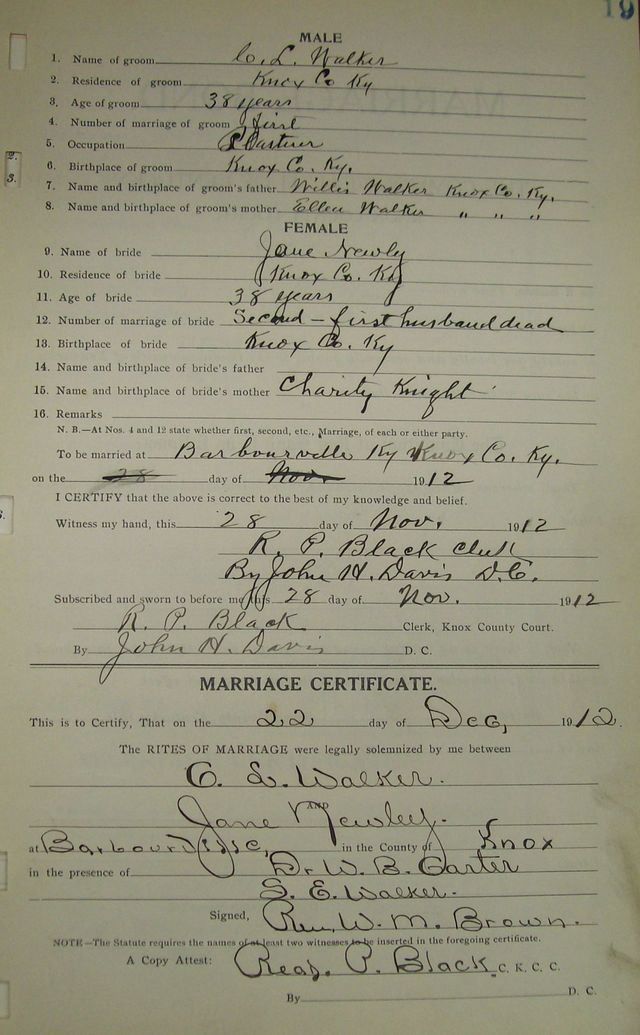 19
MALE
1. Name of groom C. L. Walker
2. Residence of groom Knox Co Ky
3. Age of groom 38 years
4. Number of marriage of groom first
5. Occupation
6. Birthplace of groom Knox Co. Ky.
7. Name and birthplace of groom's father Willis Walker Knox Co. Ky.
8. Name and birthplace of groom's mother Ellen Walker " " "
FEMALE
9. Name of bride Jane Newly
10. Residence of bride Knox Co. Ky
11. Age of bride 38 years
12. Number of marriage of bride Second - first husband dead
13. Birthplace of bride Knox Co. Ky
14. Name and birthplace of bride's father
15. Name and birthplace of bride's mother Charity Knight
16. Remarks
N. B.—At Nos. 4 and 12 state whether first, second, etc., Marriage, of each or either party.
To be married at Barbourville Ky Knox Co. Ky.
on the 28 day of Nov. 1912
I CERTIFY that the above is correct to the best of my knowledge and belief.
Witness my hand, this 28 day of Nov. 1912
R. P. Black Clerk
By John H. Davis D.C.
Subscribed and sworn to before me this 28 day of Nov. 1912
R. P. Black Clerk, Knox County Court.
By John H. Davis D. C.
MARRIAGE CERTIFICATE.
This is to Certify, That on the 22 day of Dec, 1912.
The RITES OF MARRIAGE were legally solemnized by me between
C. L. Walker.
AND
Jane Newley.
at Barbourville, in the County of Knox
in the presence of Dr W. B. Carter
S. E. Walker.
Signed, Rev. W. M. Brown.
NOTE—The Statute requires the names of at least two witnesses to be inserted in the foregoing certificate.
A Copy Attest: Read P. Black C. K. C. C.
By D. C.
2.
3.